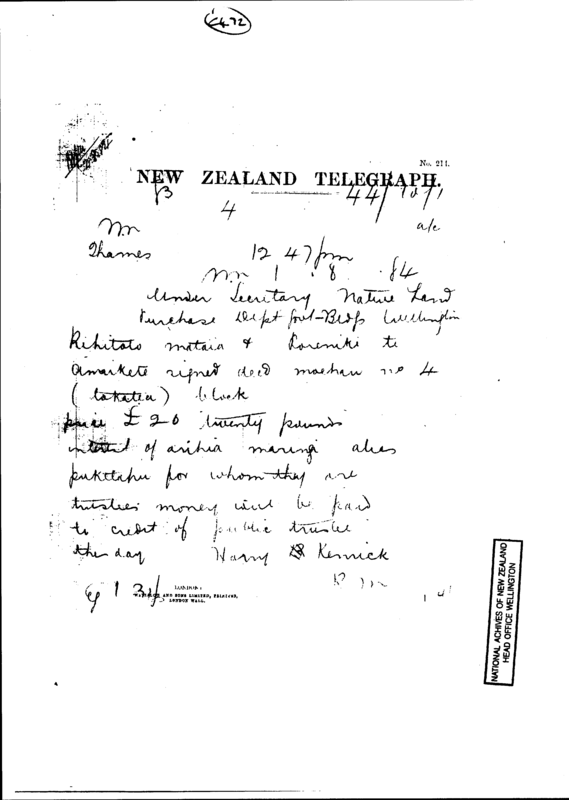 C472
No. 211.
NEW ZEALAND TELEGRAPH.
4
a/c
Thames 12 47 pm
1 . 8 . 84
Under Secretary Native Land
Purchase Dept Govt-Bldgs Wellington
Rihitoto mataia & Koreniki te
signed deed moehau no 4
(takatea) block
price £20 twenty pounds
interest of arihia maringi alias
puketahu for whom they are
trustees money will be paid
to credit of public trustee
this day Harry Kenrick
LONDON:
AND SONS LIMITED, PRINTERS,
LONDON WALL.
NATIONAL ACHIVES OF NEW ZEALAND
HEAD OFFICE WELLINGTON